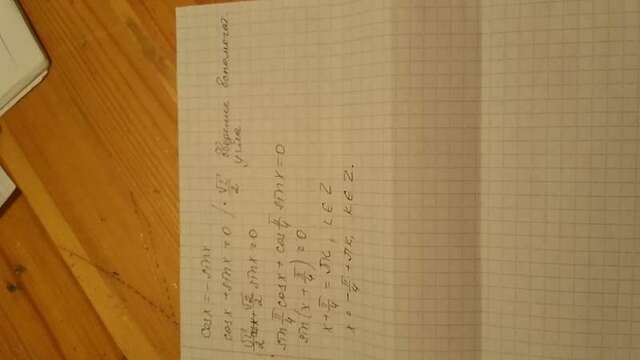 cosx = -sinx
cosx + sinx = 0 / · √2/2 Введение вспомогат. угла
√2/2 cosx + √2/2 sinx = 0
sin π/4 cosx + cos π/4 sinx = 0
sin(x + π/4) = 0
x + π/4 = πk, k ∈ Z
x = -π/4 + πk, k ∈ Z.